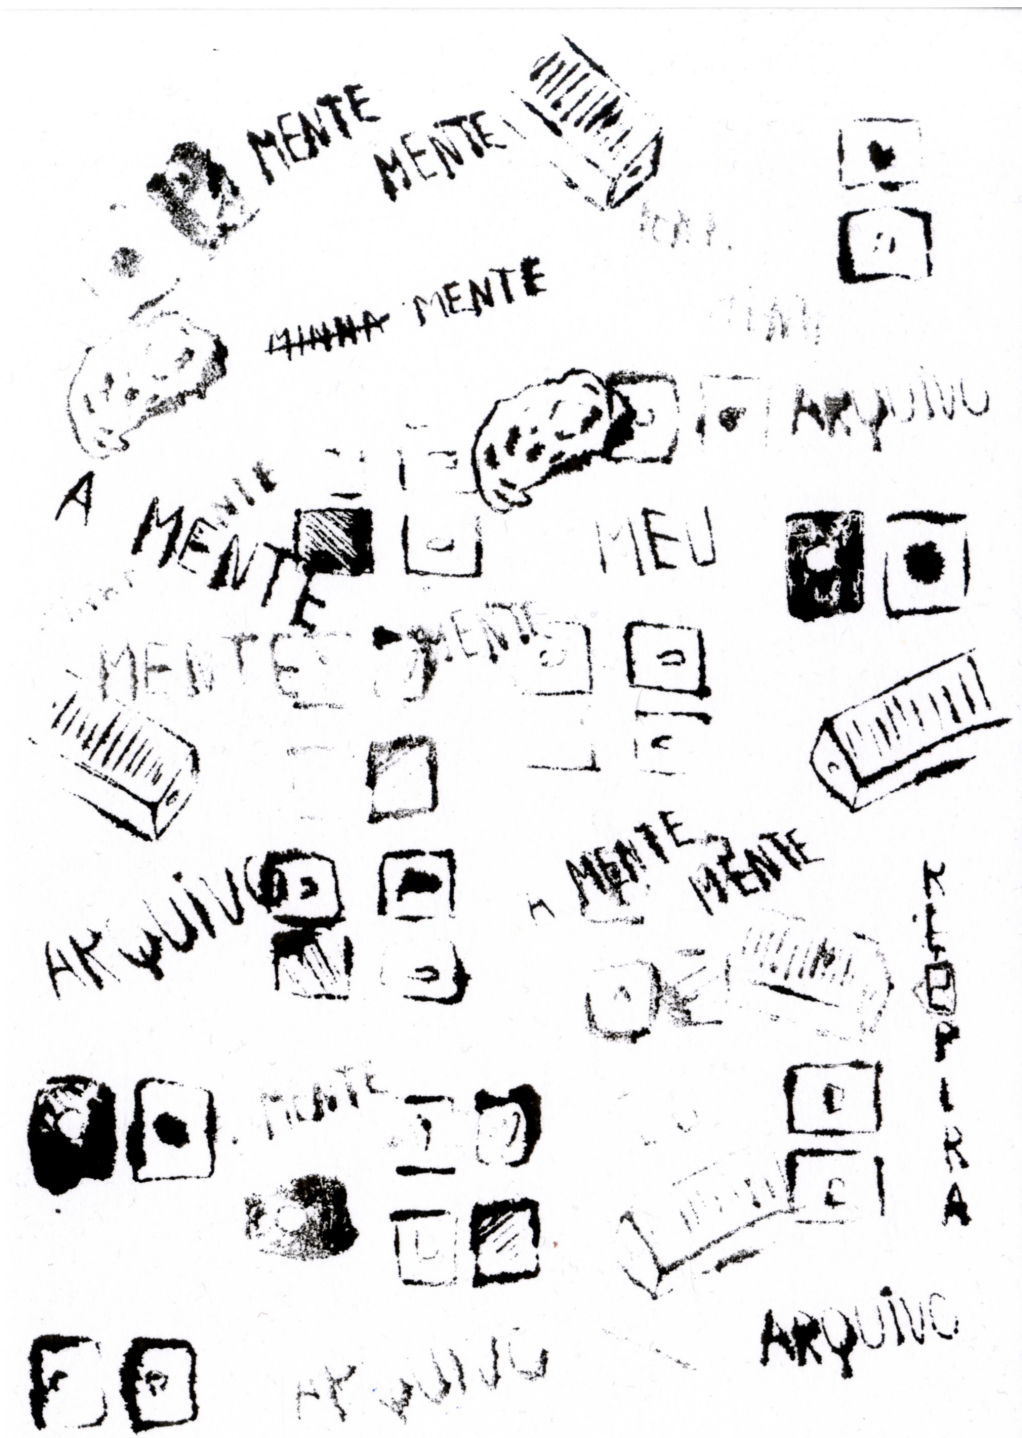 MENTE
MENTE
MINHA MENTE
ARQUIVO
A MENTE
MENTE
MEU
MENTE
MENTE
A MENTE
MENTE
ARQUIVO
MENTE
ARQUIVO
ARQUIVO